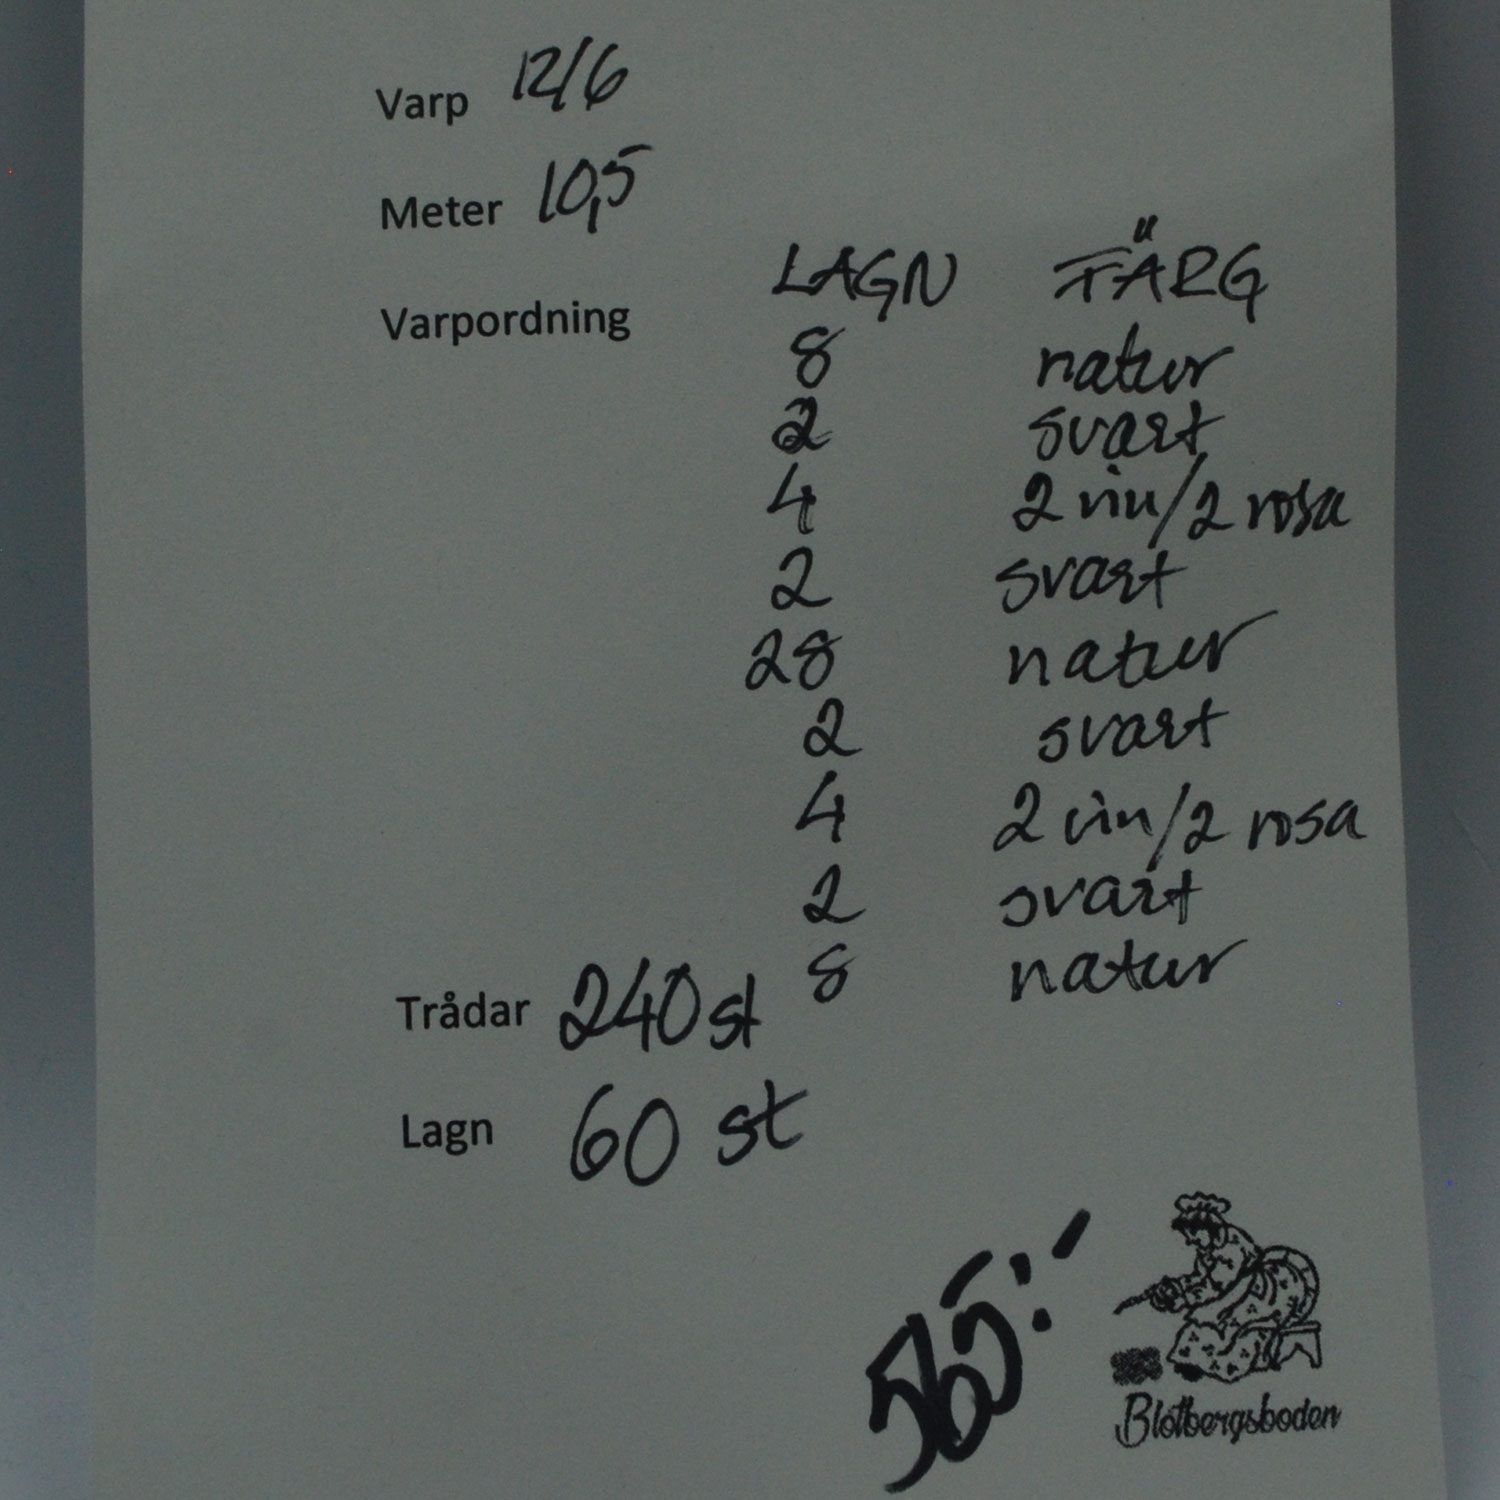 Varp 12/6
Meter 10,5
Varpordning LAGN FÄRG
8 natur
2 svart
4 2 vin/2 rosa
2 svart
28 natur
2 svart
4 2 vin/2 rosa
2 svart
8 natur
Trådar 240 st
Lagn 60 st
565:-
Blotbergsboden